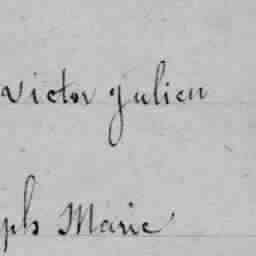 Victor Julien
ph Marie